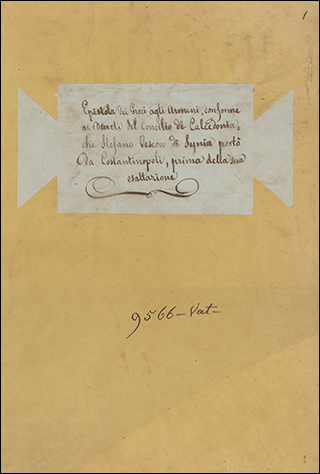 1
Epistola dei Greci agli Armeni, conforme
ai Decreti del Concilio di Calcedonia,
che Stefano Vescovo di Synia portò
da Costantinopoli, prima della sua
esaltazione
9566-Vat-